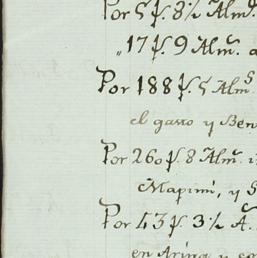 Por 5 f. 8½ Alm.s
„ 17 f. 9 Alm.s a
Por 188 f. 5 Alm.s
el gasto y Ben
Por 260 f. 8 Alm.s
Mapimi, y S
Por 43 f. 3½ A.
en Arina y co